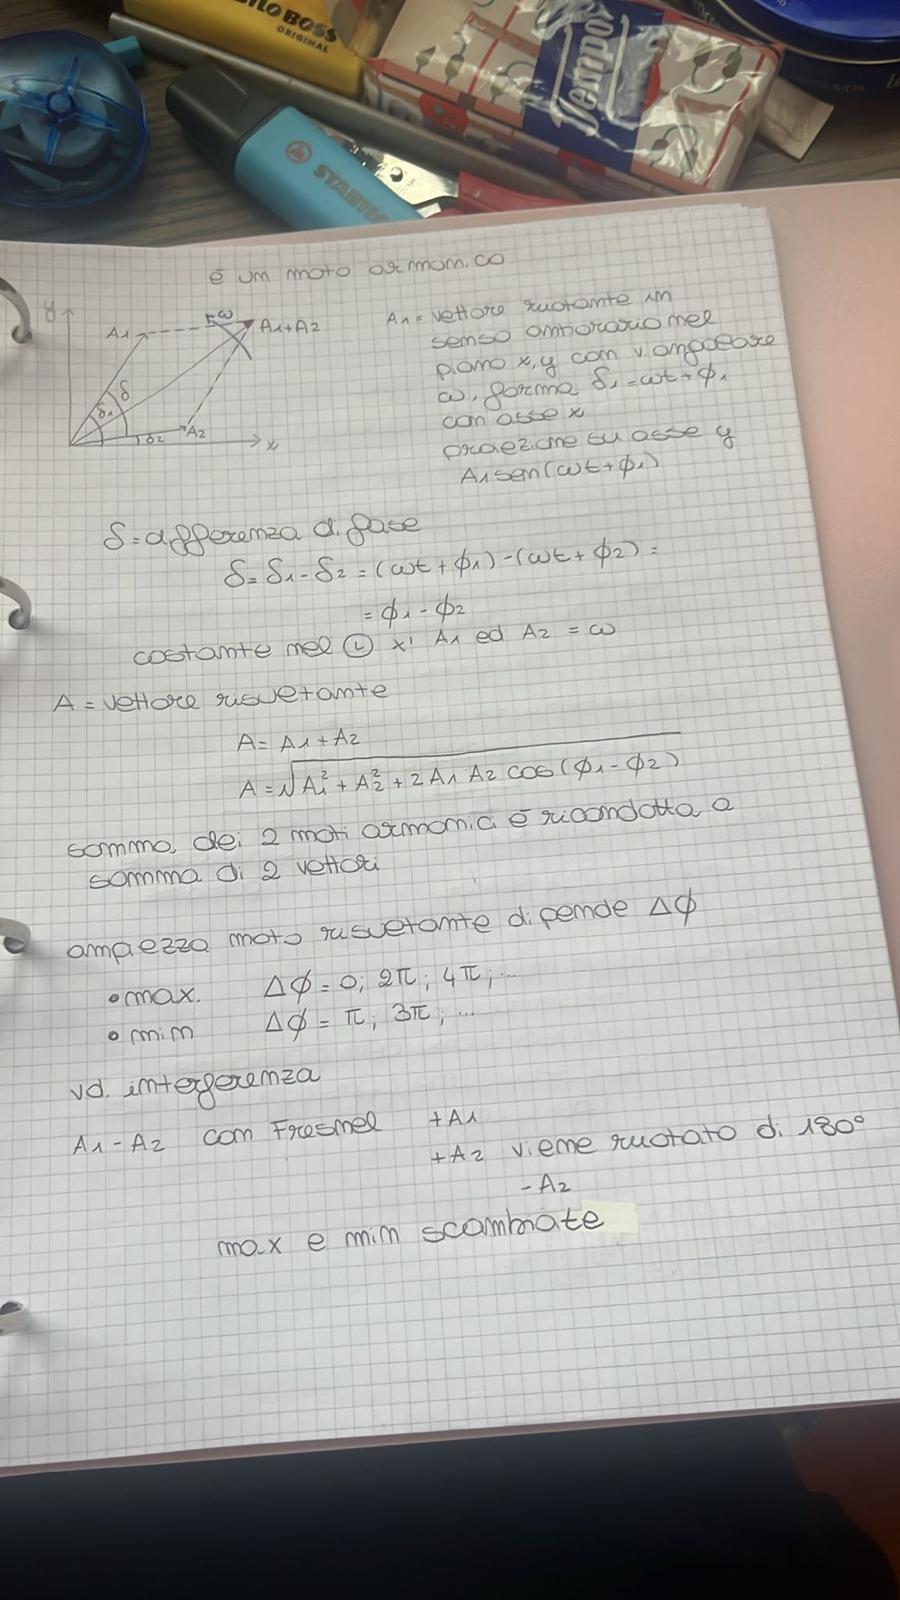 ILO BOSS
ORIGINAL
Tempo
STABILO
è un moto armonico
y
A1
ω
A1+A2
δ
δ1
δ2
A2
x
A1 = vettore ruotante in
senso antiorario nel
piano x,y con v angolare
ω, forma δ1 = ωt + ϕ1
con asse x
proiezione su asse y
A1 sen(ωt+ϕ1)
δ = differenza di fase
δ = δ1 - δ2 = (ωt + ϕ1) - (ωt + ϕ2) =
= ϕ1 - ϕ2
costante nel t x' A1 ed A2 = ω
A = vettore risultante
A = A1 + A2
A = √A1² + A2² + 2 A1 A2 cos (ϕ1 - ϕ2)
somma dei 2 moti armonici è ricondotta a
somma di 2 vettori
ampiezza moto risultante dipende Δϕ
• max. Δϕ = 0; 2π; 4π; ...
• min Δϕ = π; 3π; ...
vd. interferenza
A1 - A2 con Fresnel +A1
+A2 viene ruotato di 180°
-A2
max e min scambiate